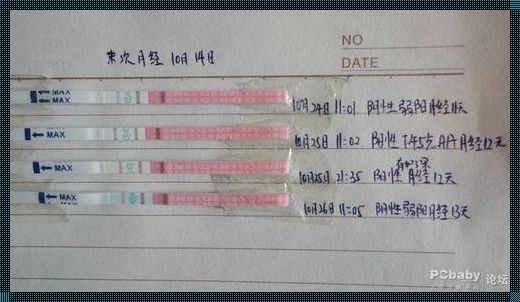 NO
末次月经 10月14日
DATE
MAX
MAX
10月24日 11:01 阳性弱阳月经11天
MAX
10月25日 11:02 阳性 月经12天
MAX
10月25日 21:35 阳性 月经12天
MAX
10月26日 11:05 阳性弱阳月经13天
PCbaby 论坛